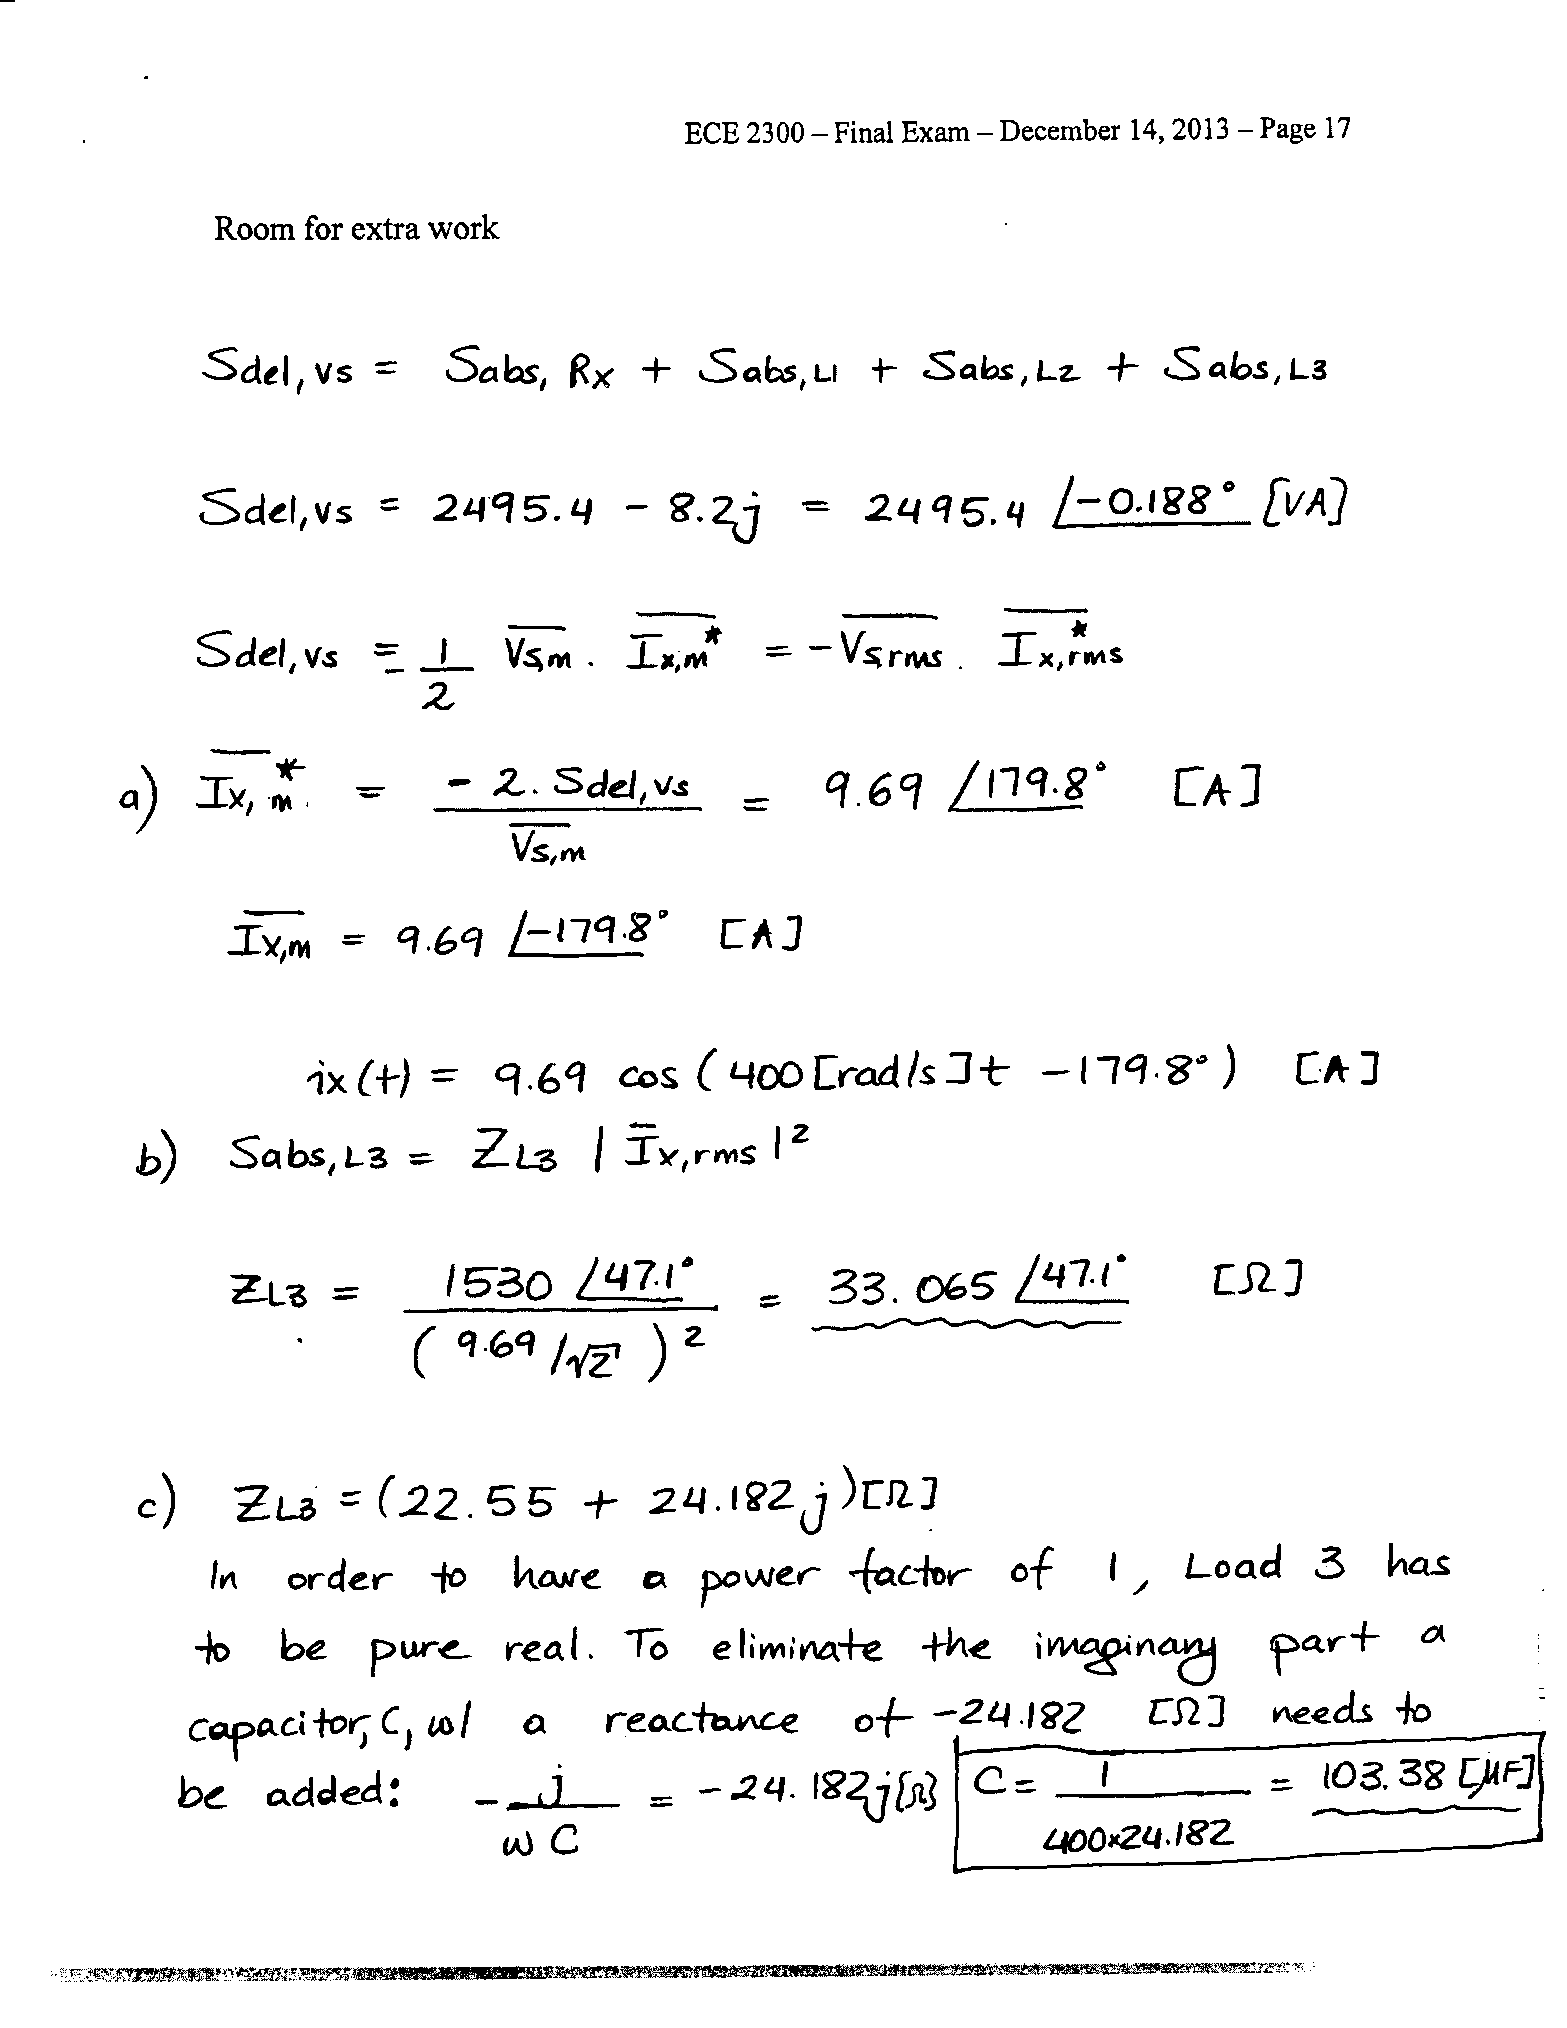 ECE 2300 – Final Exam – December 14, 2013 – Page 17
Room for extra work
Sdel,vs = Sabs,Rx + Sabs,L1 + Sabs,L2 + Sabs,L3
Sdel,vs = 2495.4 - 8.2j = 2495.4 /-0.188° [VA]
Sdel,vs = -1/2 Vs,m . Ix,m* = - Vs,rms . Ix,rms*
a) Ix,m* = - 2. Sdel,vs / Vs,m = 9.69 /179.8° [A]
Ix,m = 9.69 /-179.8° [A]
ix(t) = 9.69 cos (400[rad/s]t -179.8°) [A]
b) Sabs,L3 = ZL3 | Ix,rms |²
ZL3 = 1530 /47.1° / (9.69/√2)² = 33.065 /47.1° [Ω]
c) ZL3 = (22.55 + 24.182j)[Ω]
In order to have a power factor of 1, Load 3 has
to be pure real. To eliminate the imaginary part a
capacitor, C, w/ a reactance of -24.182 [Ω] needs to
be added: -j/ωC = -24.182j[Ω] C = 1/400×24.182 = 103.38 [μF]